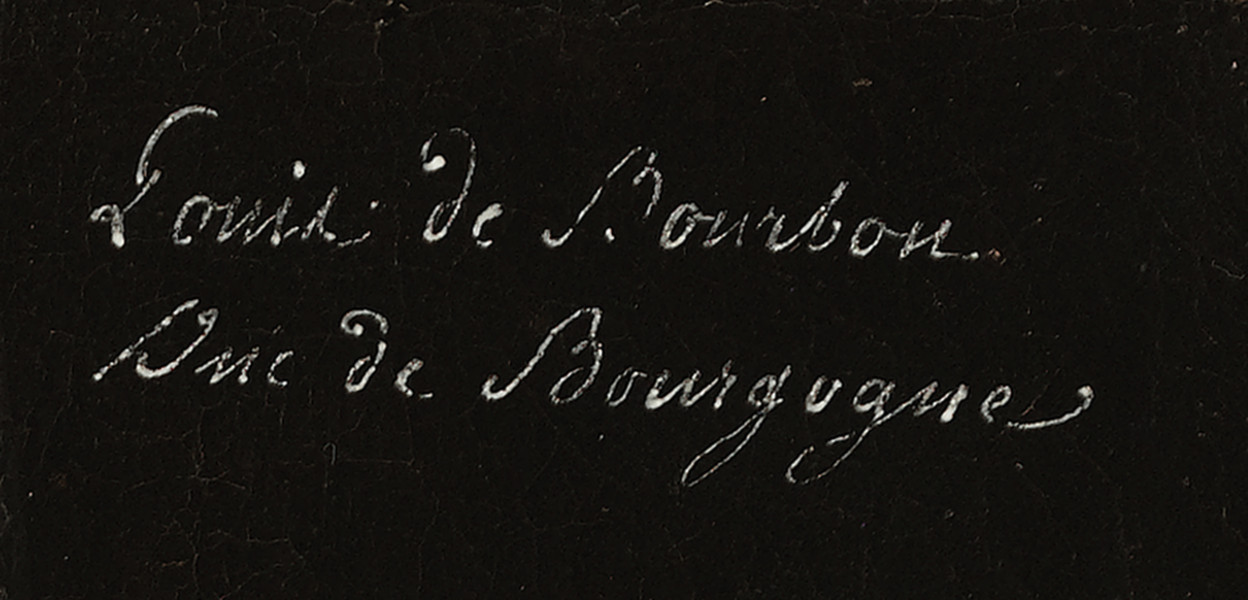 Louis de Bourbon.
Duc de Bourgogne